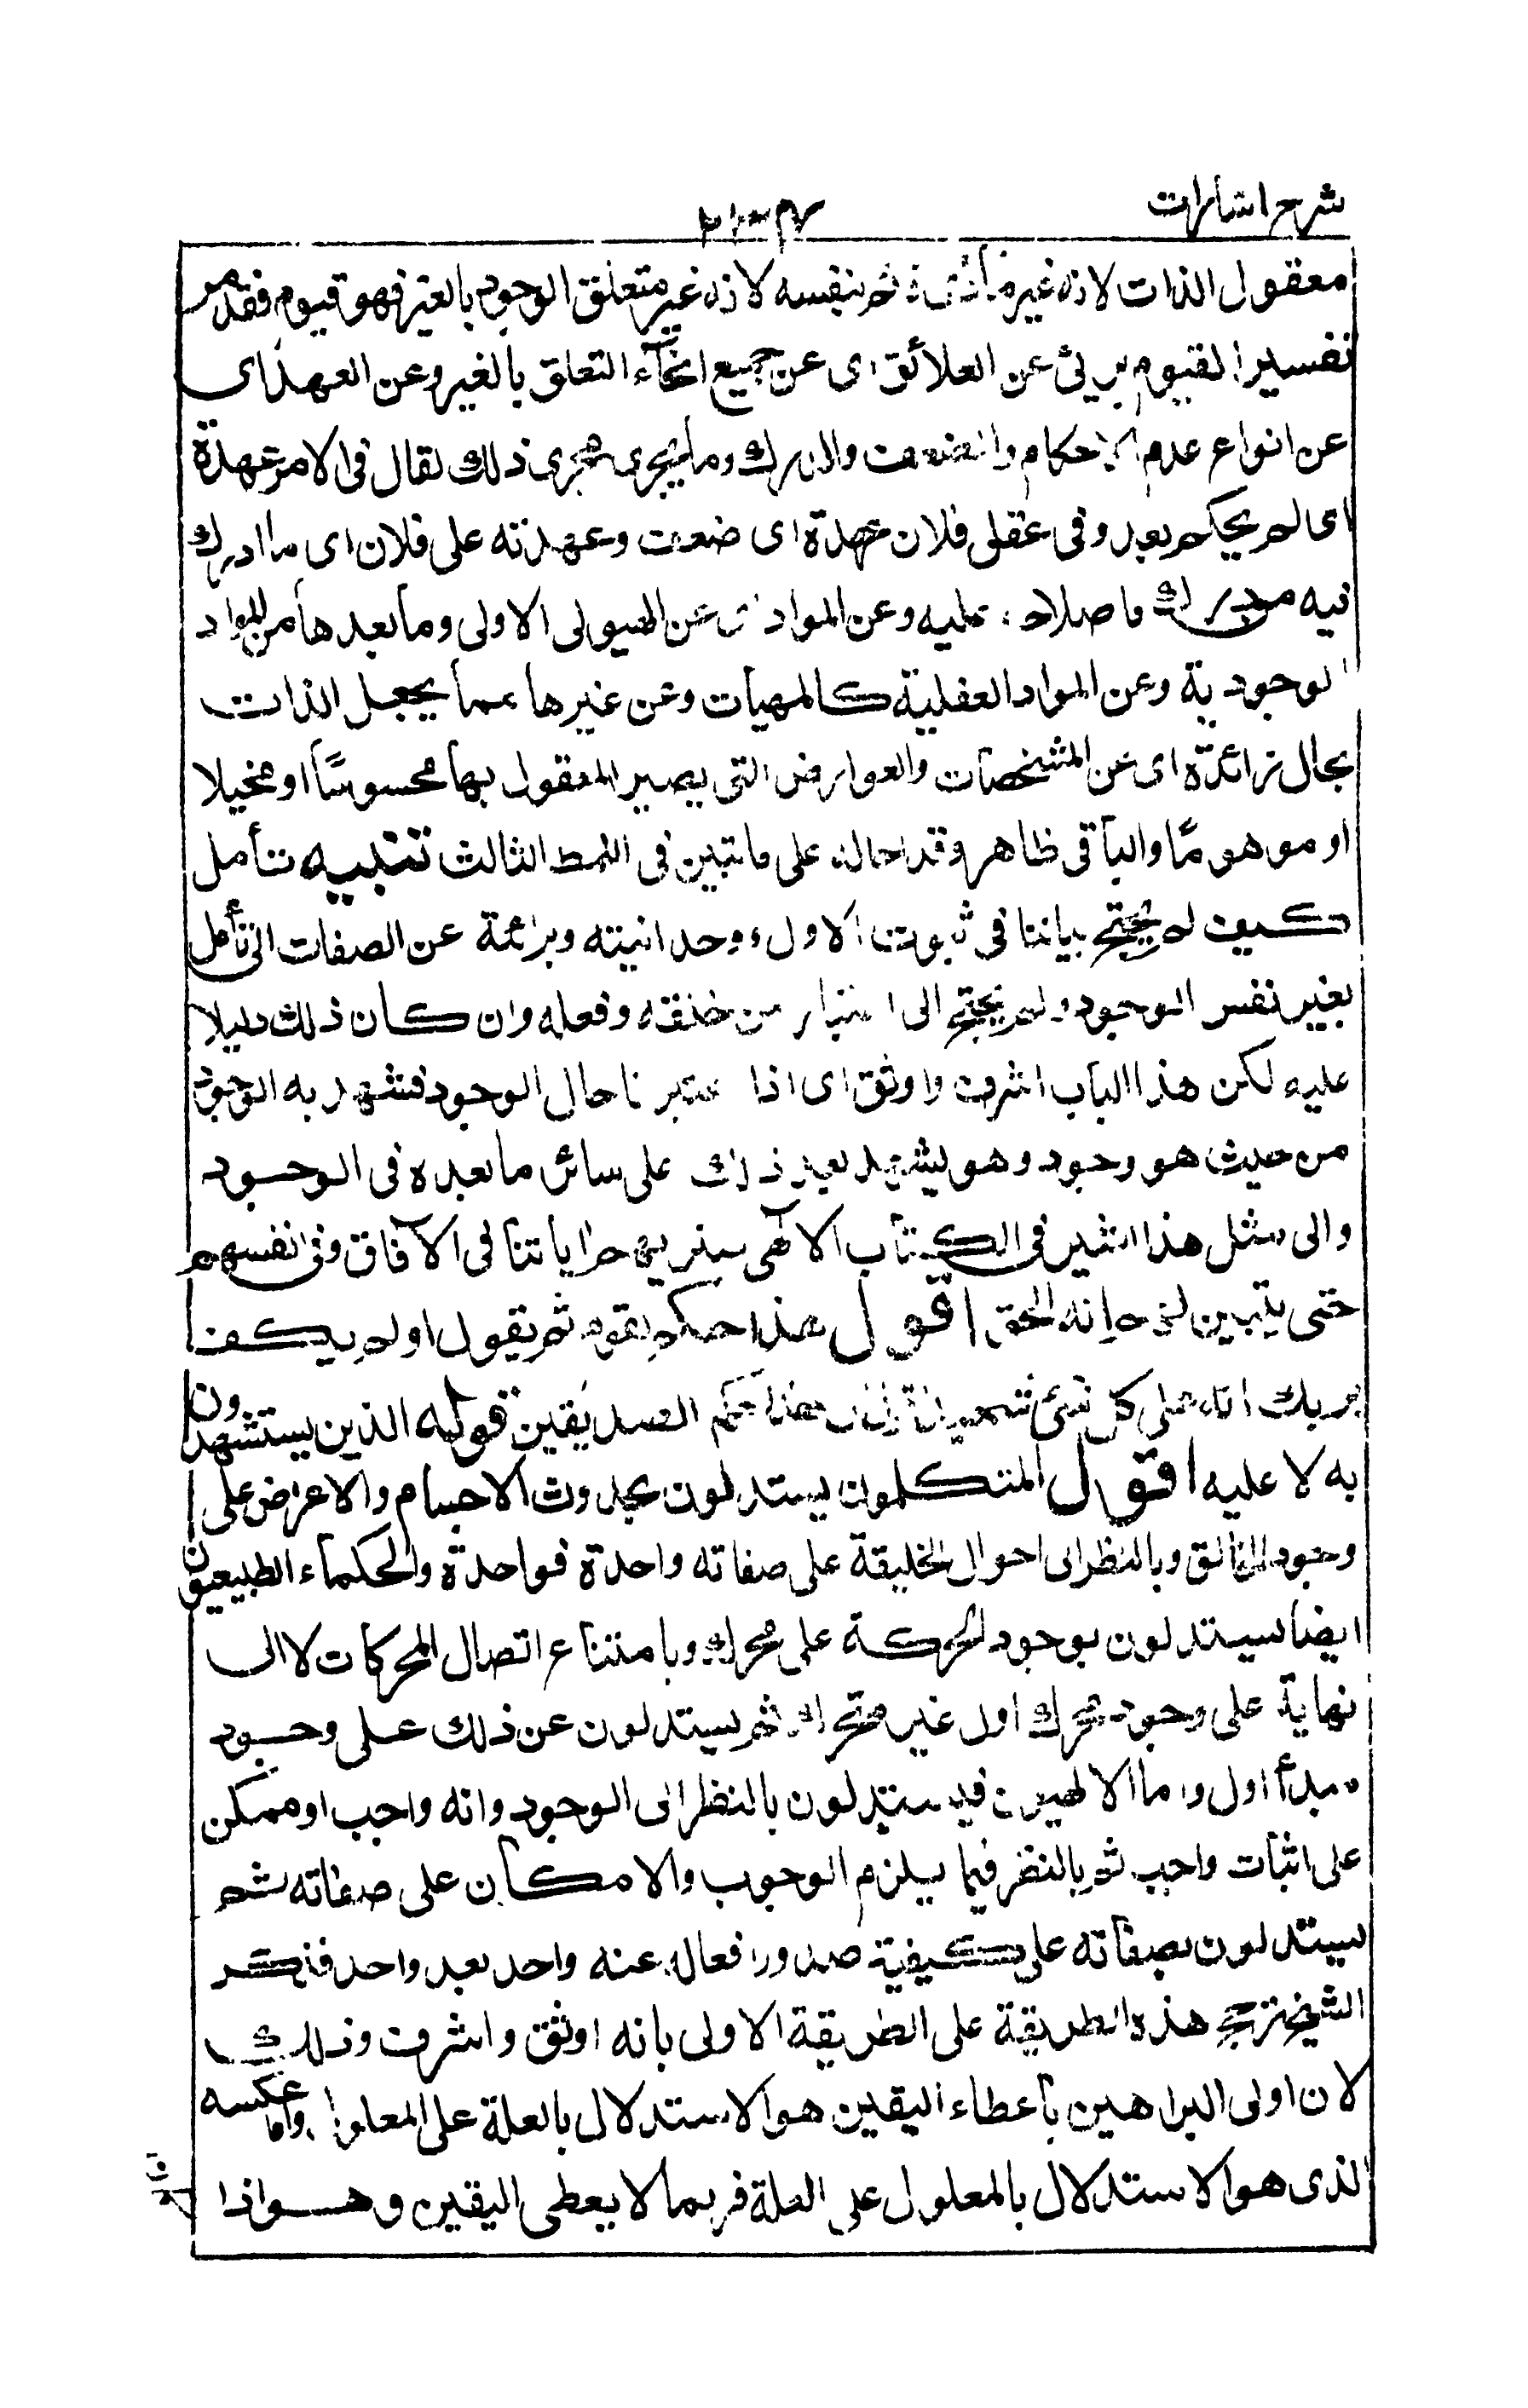 شرح اشارات
معقول الذات لانه غير قائم بنفسه لانه غير متعلق الوجود بالغير فهو قيوم فقد مر
تفسير القيوم برئ عن العلائق اى عن جميع انحآء التعلق بالغير وعن العهدَاى
عن انواع عدم الاحكام والضعف والدرك وما يجرى مجرى ذلك يقال فى الامر عهدة
اى لم يحكم بعد وفى عقل فلان عهدة اى ضعف وعهدته على فلان اى ما ادرك
فيه من درك فاصلاحه عليه وعن المواد اى عن الهيولى الاولى وما بعدها من المواد
الوجودية وعن المواد العقلية كالمهيات وعن غيرها مما يجعل الذات
بحال زائدة اى عن المشخصات والعوارض التى يصير المعقول بها محسوسًا او مخيلا
او موهومًا والباقى ظاهر وقد احاله على ما تبين فى النمط الثالث تنبيه تأمل
كيف لم يحتج بياننا فى ثبوت الاول ووحدانيته وبرائة عن الصفات الى تأمل
بغير نفس الوجود ولم يحتج الى اعتبار من خلقه وفعله وان كان ذلك دليلا
عليه لكن هذا الباب اشرف واوثق اى اذا اعتبرنا حال الوجود فشهد به الوجود
من حيث هو وجود وهو يشهد بعد ذلك على سائر ما بعده فى الوجود
والى مثل هذا اشير فى الكتاب الآلهى سنريهم اياتنا فى الآفاق وفى انفسهم
حتى يتبين لهم انه الحق اقول هذا حكم بقوم ثم يقول اولم يكف
بربك انه على كل شئ شهيد اقول ان هذا حكم الصديقين قوله الذين يستشهدون
به لا عليه اقول المتكلمون يستدلون بحدوث الاجسام والاعراض على
وجود الخالق وبالنظر الى احوال الخليقة على صفاته واحدة فواحدة والحكماء الطبيعيون
ايضا يستدلون بوجود الحركة على محرك وبامتناع اتصال المحركات لا الى
نهاية على وجود محرك اول غير متحرك ثم يستدلون عن ذلك على وجود
مبدأ اول واما الالهيون فيستدلون بالنظر الى الوجود وانه واجب او ممكن
على اثبات واجب ثم بالنظر فيما يلزم الوجوب والامكان على صفاته ثم
يستدلون بصفاته على كيفية صدور افعاله عنه واحد بعد واحد فذكر
الشيخ ترجيح هذه الطريقة على الطريقة الاولى بانه اوثق واشرف وذلك
لان اولى البراهين باعطاء اليقين هو الاستدلال بالعلة على المعلول واما عكسه
الذى هو الاستدلال بالمعلول على العلة فربما لا يعطى اليقين وهو اذا